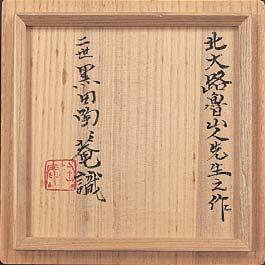 北大路魯山人先生之作
二世黒田陶菴識